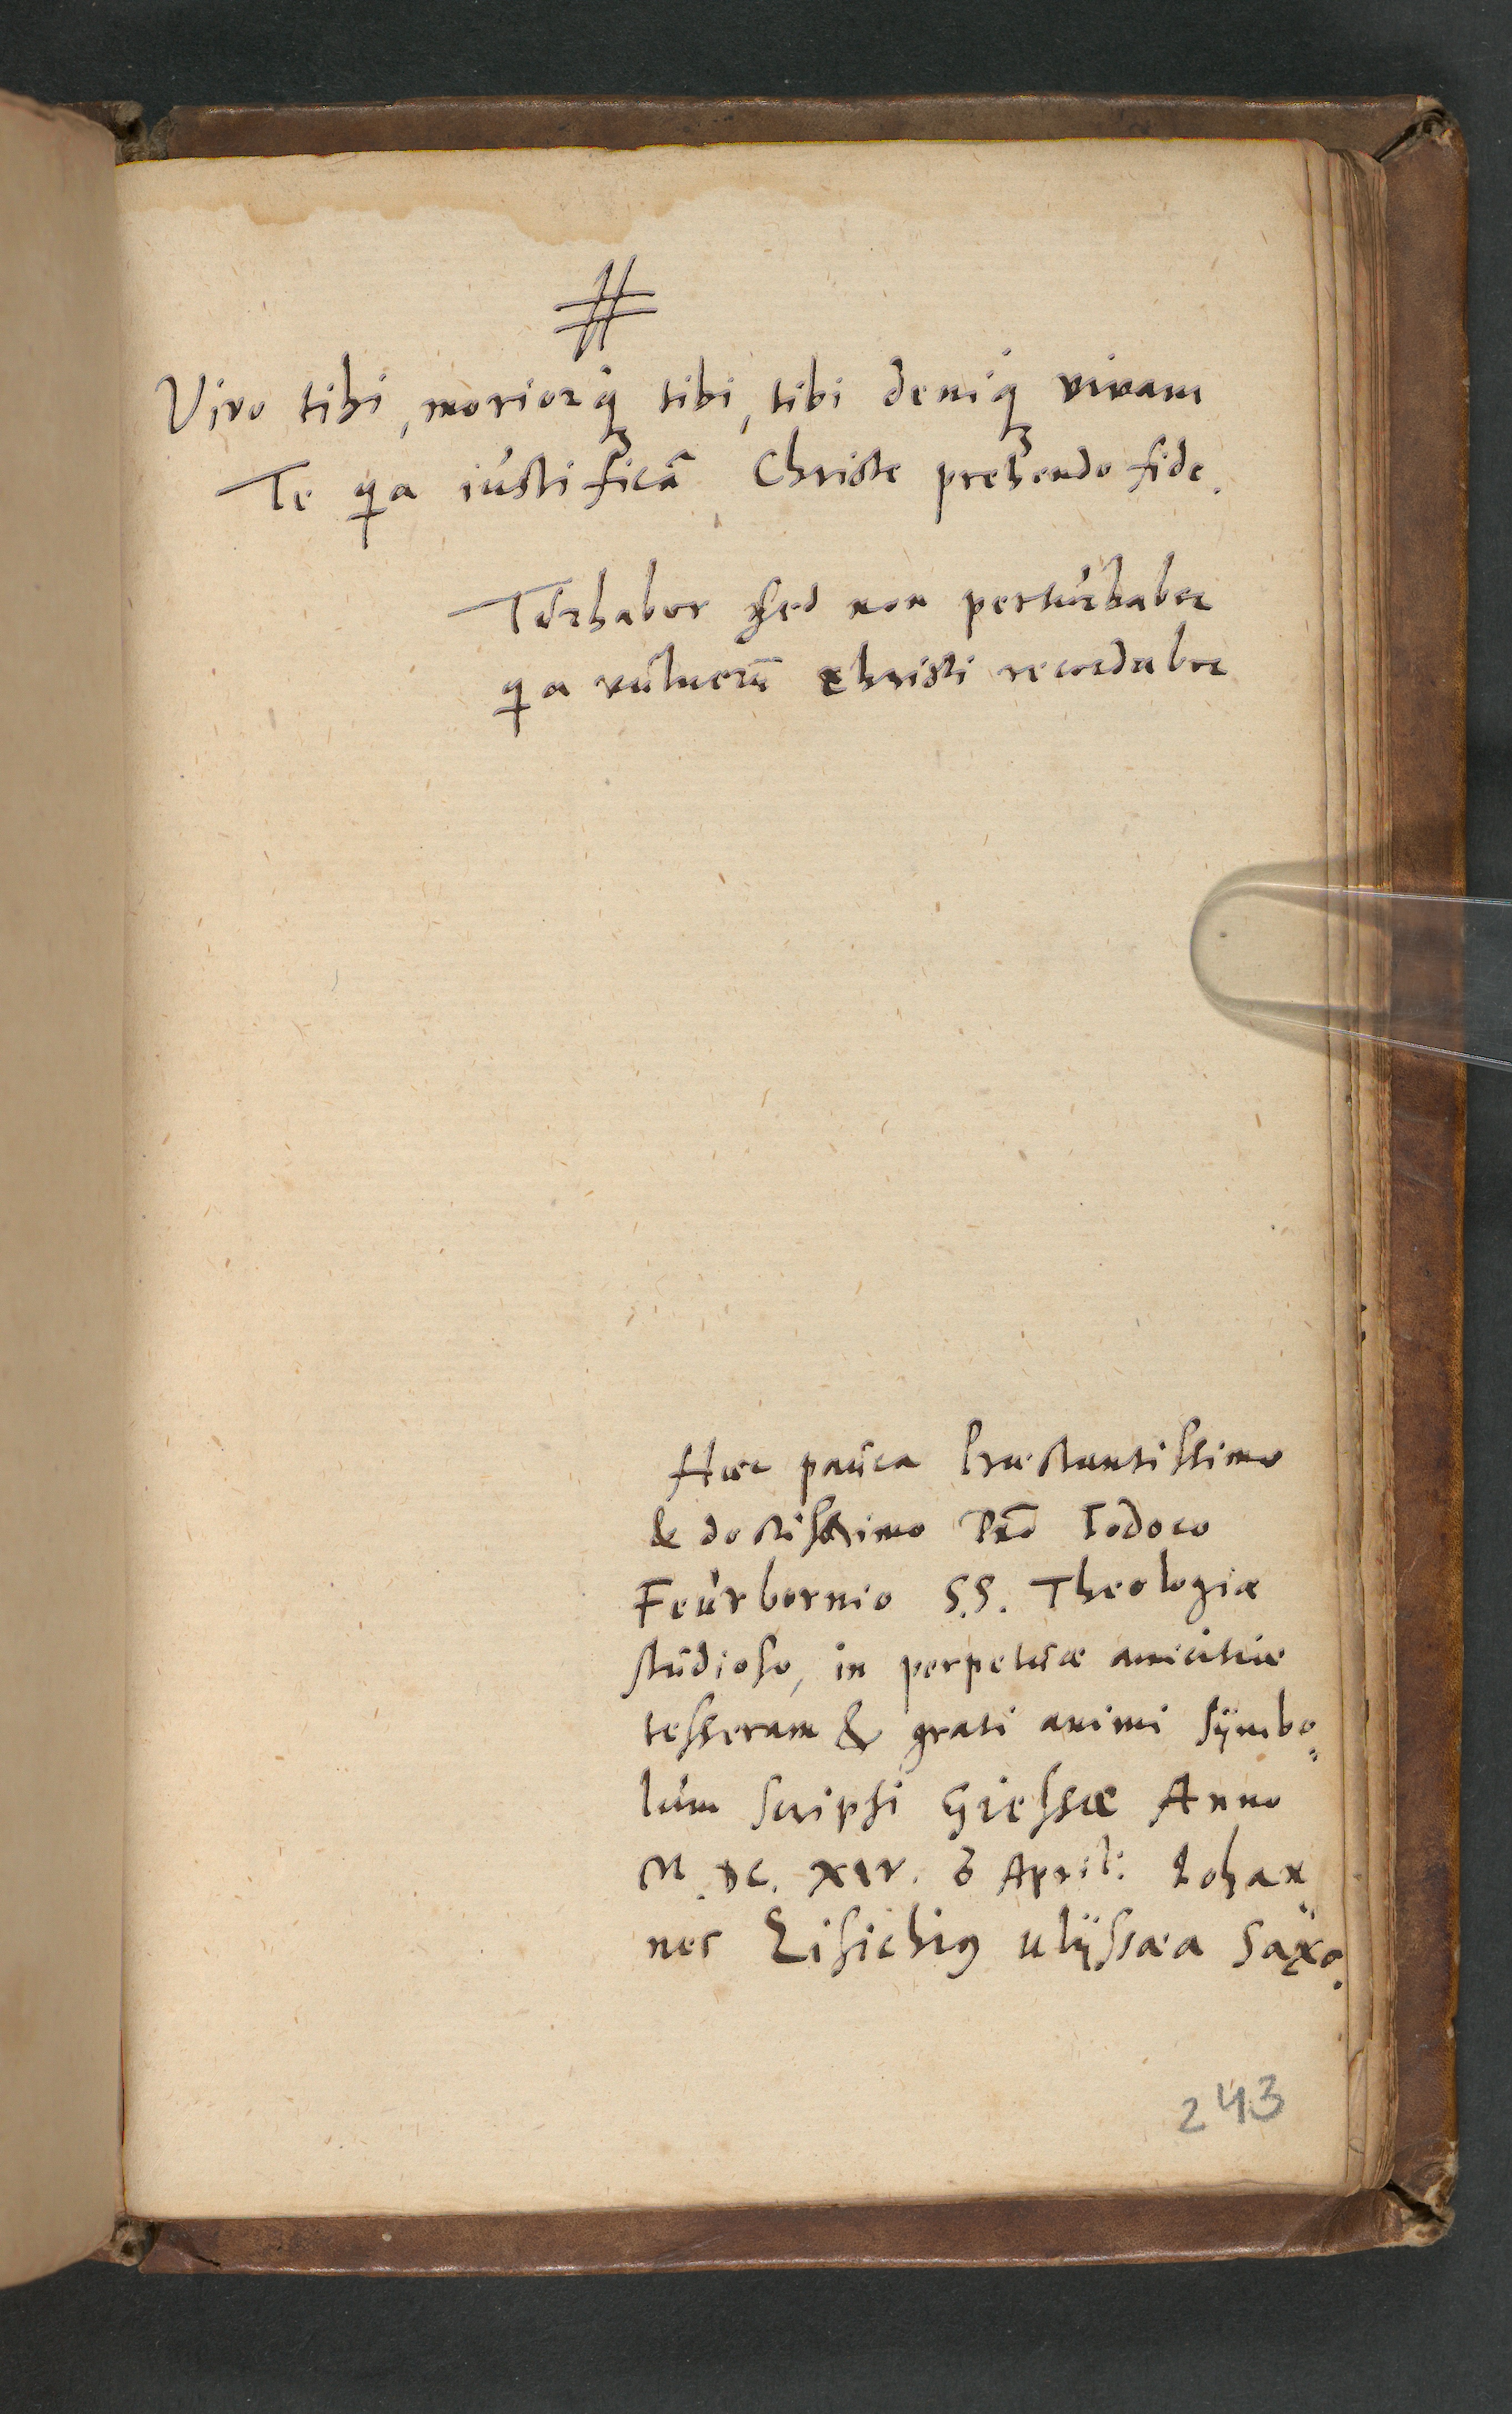 #
Vivo tibi, moriorq́ꝫ tibi, tibi deniq́ꝫ vivam
Te qa iustificā Christe prehendo fide.
Turbabor sed non perturbabor
qa vulnerū christi recordabor
Haec pauca Praestantissimo
& doctissimo Dnō Iodoco
Feurbornio S.S. Theologiae
studioso, in perpetuae amicitiae
tesseram & grati animi sÿmbo„
lum scripsi Giessae Anno
M.DC.XIV. 6 April: Iohan„
nes Lisichiꝰ ulÿssaea Saxo.
243